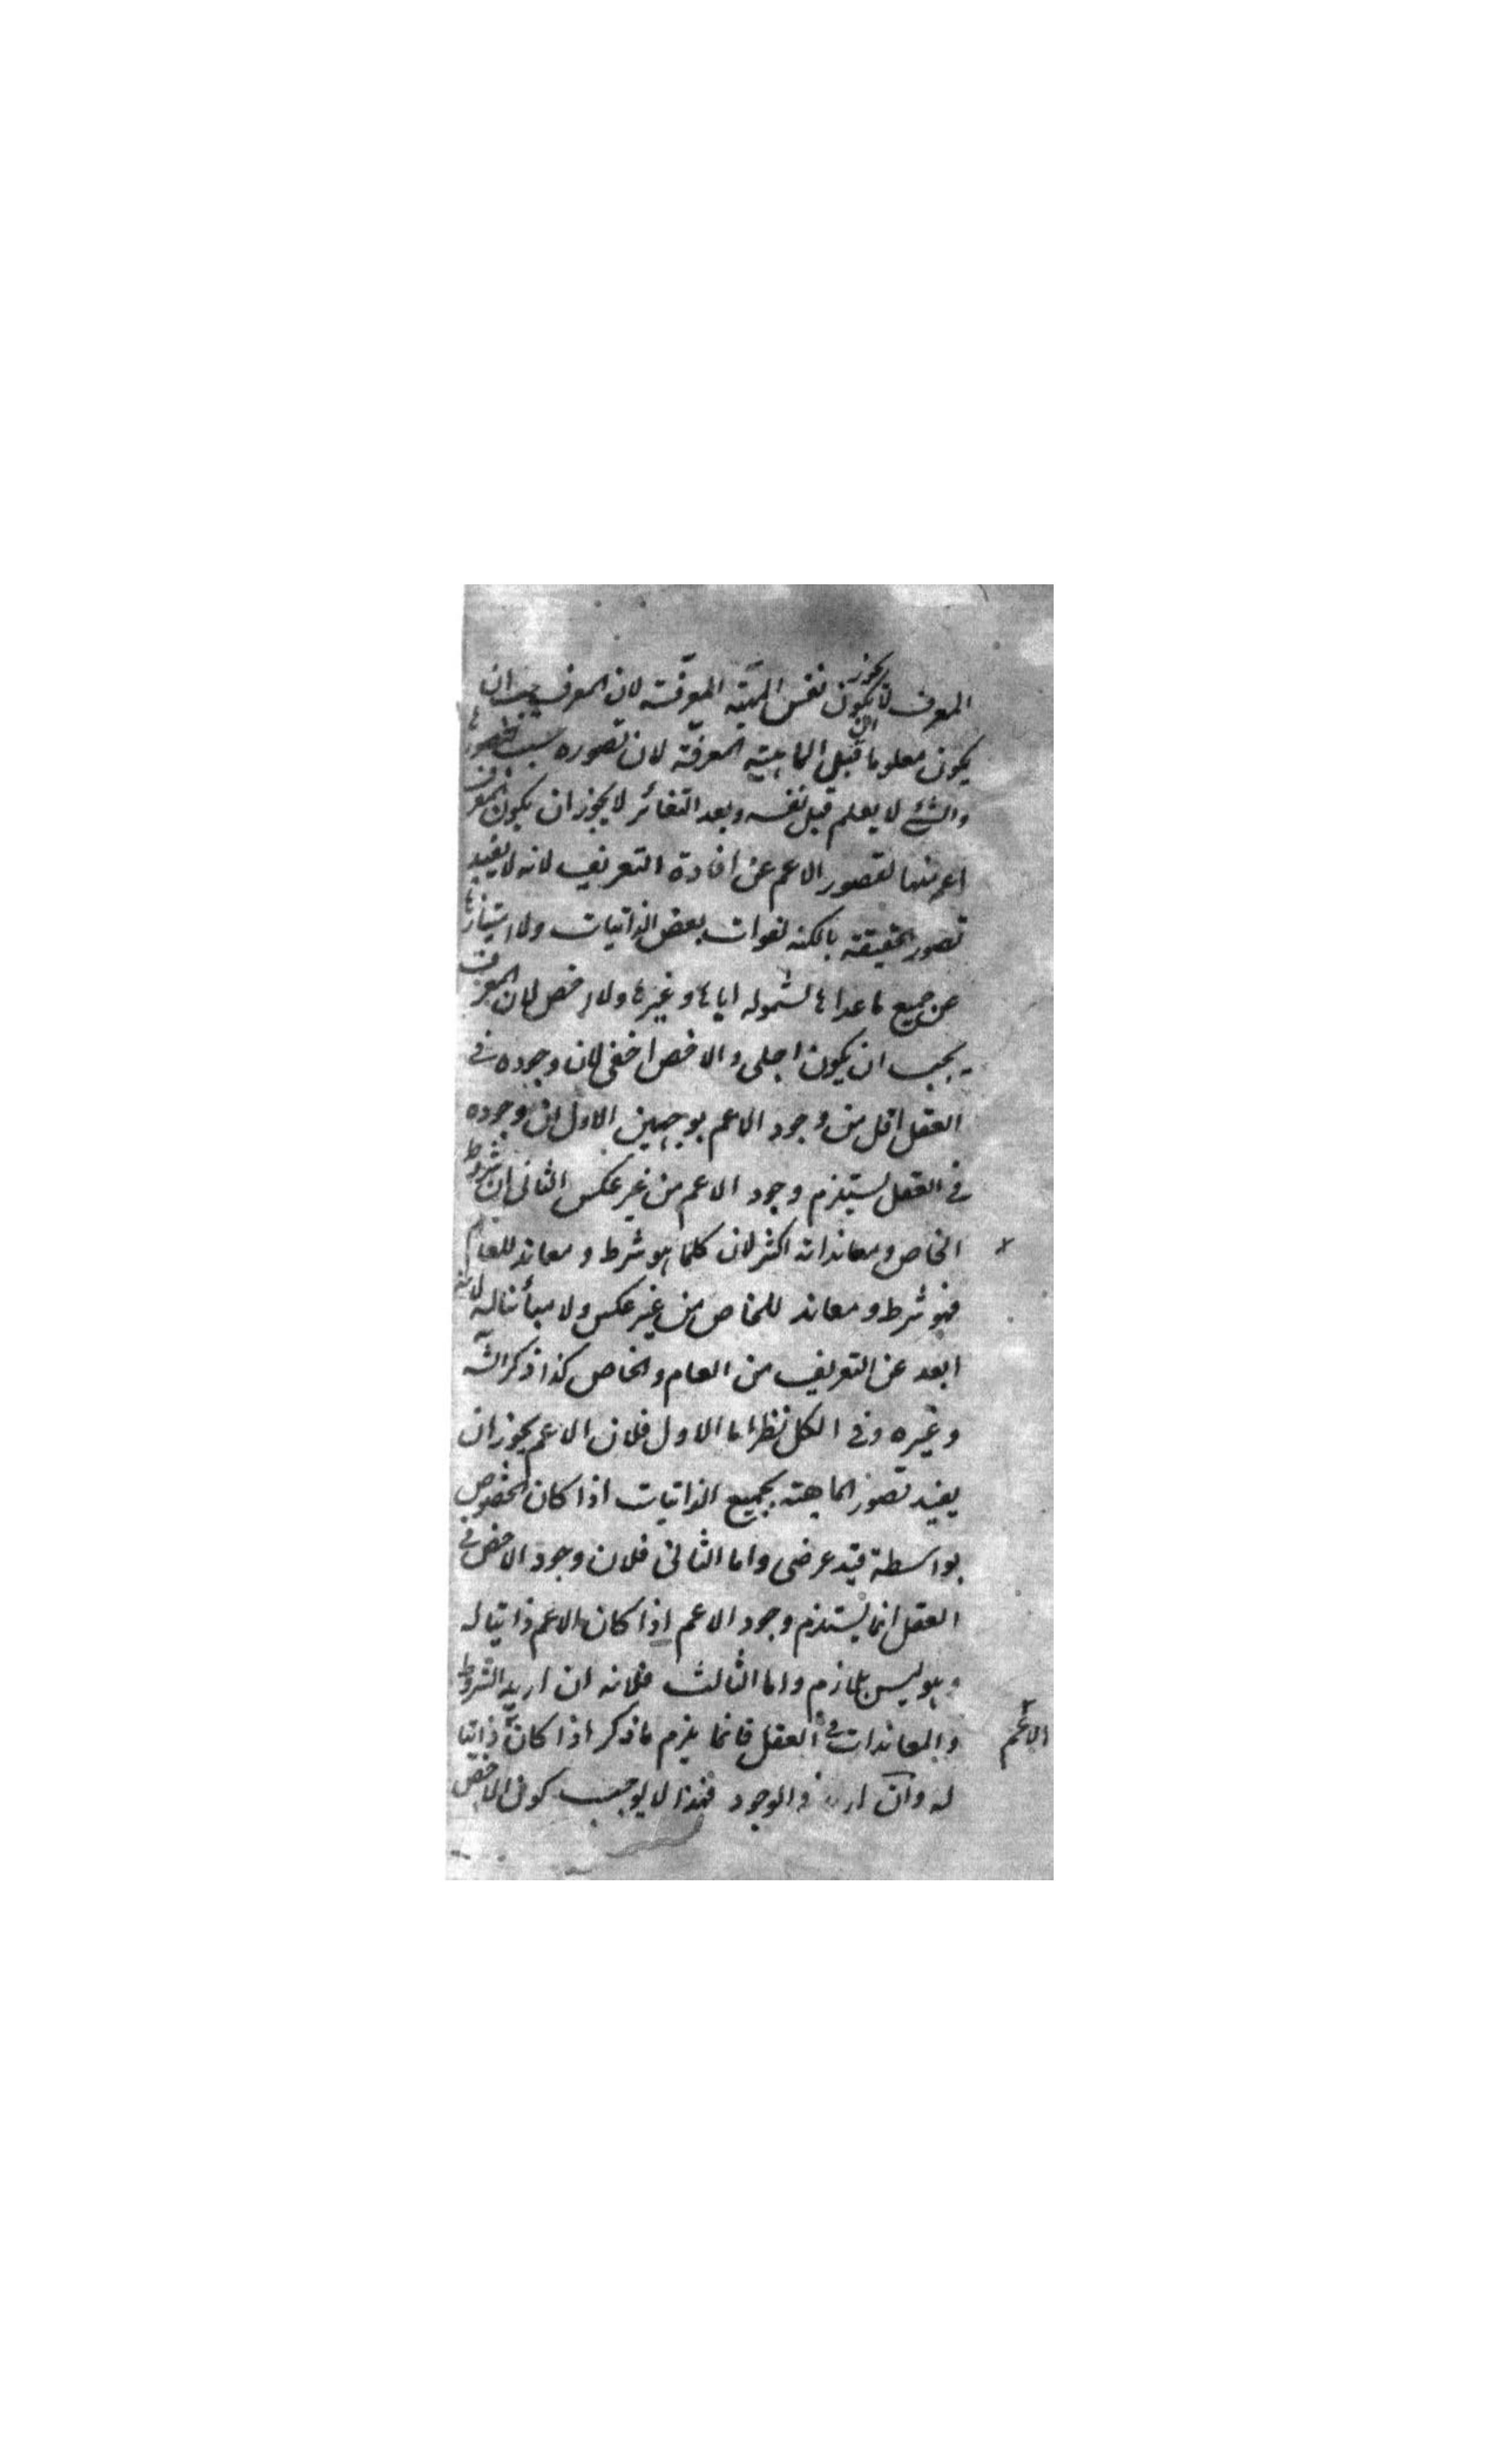 المعرف لا يجوز ان يكون نفس المهية المعرّفة لان المعرف يجب ان
يكون معلوما قبل الماهية المعرفّة لان تصوره سبب لتصورها
والشئ لا يعلم قبل نفسه وبعد التغائر لا يجوز ان يكون المعرف
اعم منها لقصور الاعم عن افادة التعريف لانه لا يفيد
تصور الحقيقة بالكنه لفوات بعض الذاتيات ولا امتيازها
عن جميع ماعداها لشموله اياها وغيرها ولا اخص لان المعرف
يجب ان يكون اجلى والاخص اخفى لان وجوده فى
العقل اقل من وجود الاعم بوجهين الاول ان وجوده
فى العقل يستلزم وجود الاعم من غير عكس الثانى ان شروط
الخاص ومعانداته اكثر لان كلما هو شرط ومعاند للعام
فهو شرط ومعاند للخاص من غير عكس ولا مبائنا له لانه
ابعد عن التعريف من العام والخاص كذا ذكر الشه
وغيره وفى الكل نظر اما الاول فلان الاعم يجوز ان
يفيد تصور الماهية بجميع الذاتيات اذا كان الخصوص
بواسطة قيد عرضى واما الثانى فلان وجود الاخص فى
العقل انما يستلزم وجود الاعم اذا كان الاعم ذاتيا له
وهو ليس بلازم واما الثالث فلانه ان اريد الشروط
والمعاندات فى العقل فانما يلزم ما ذكر اذا كان ذاتيا
الاعم
له وان اريد فى الوجود فهذا لا يوجب كون الاخص